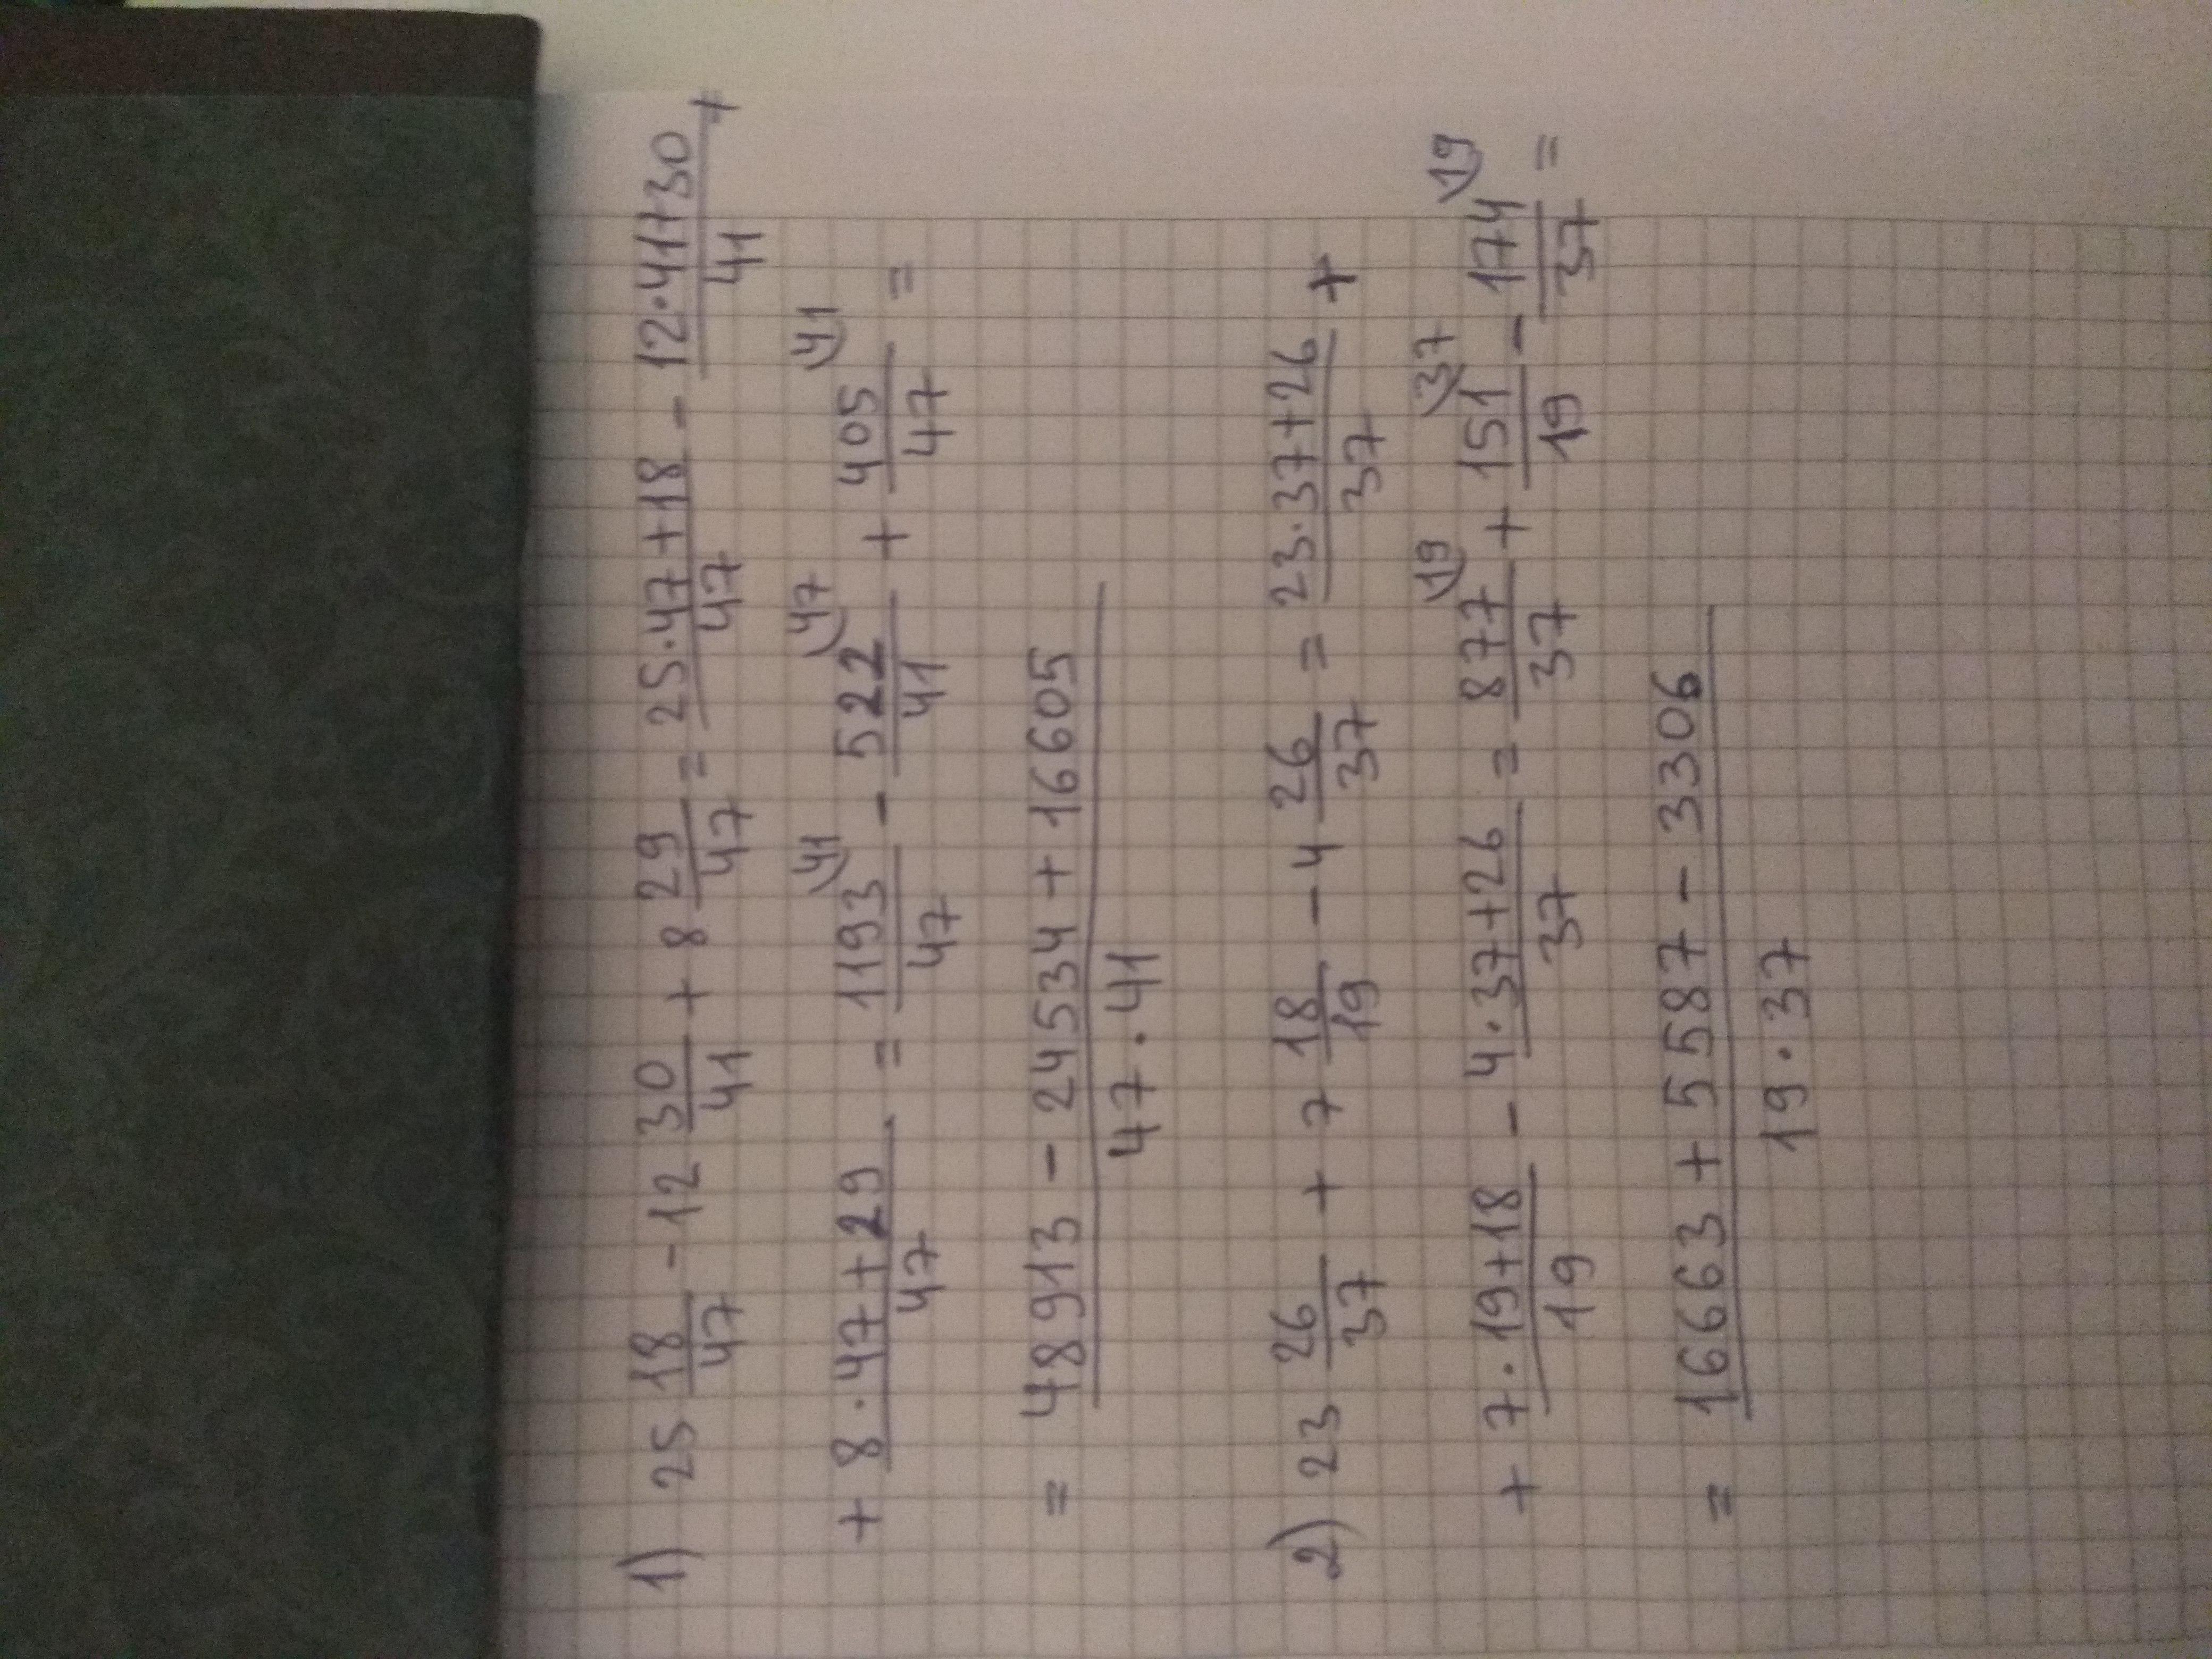 1) 25 18/47 - 12 30/41 + 8 29/47 = (25·47+18)/47 - (12·41+30)/41 +
+ (8·47+29)/47 = 1193/47 \41 - 522/41 \47 + 405/47 \41 =
= (48913 - 24534 + 16605)/(47·41)
2) 23 26/37 + 7 18/19 - 4 26/37 = (23·37+26)/37 +
+ (7·19+18)/19 - (4·37+26)/37 = 877/37 \19 + 151/19 \37 - 174/37 \19 =
= (16663 + 5587 - 3306)/(19·37)